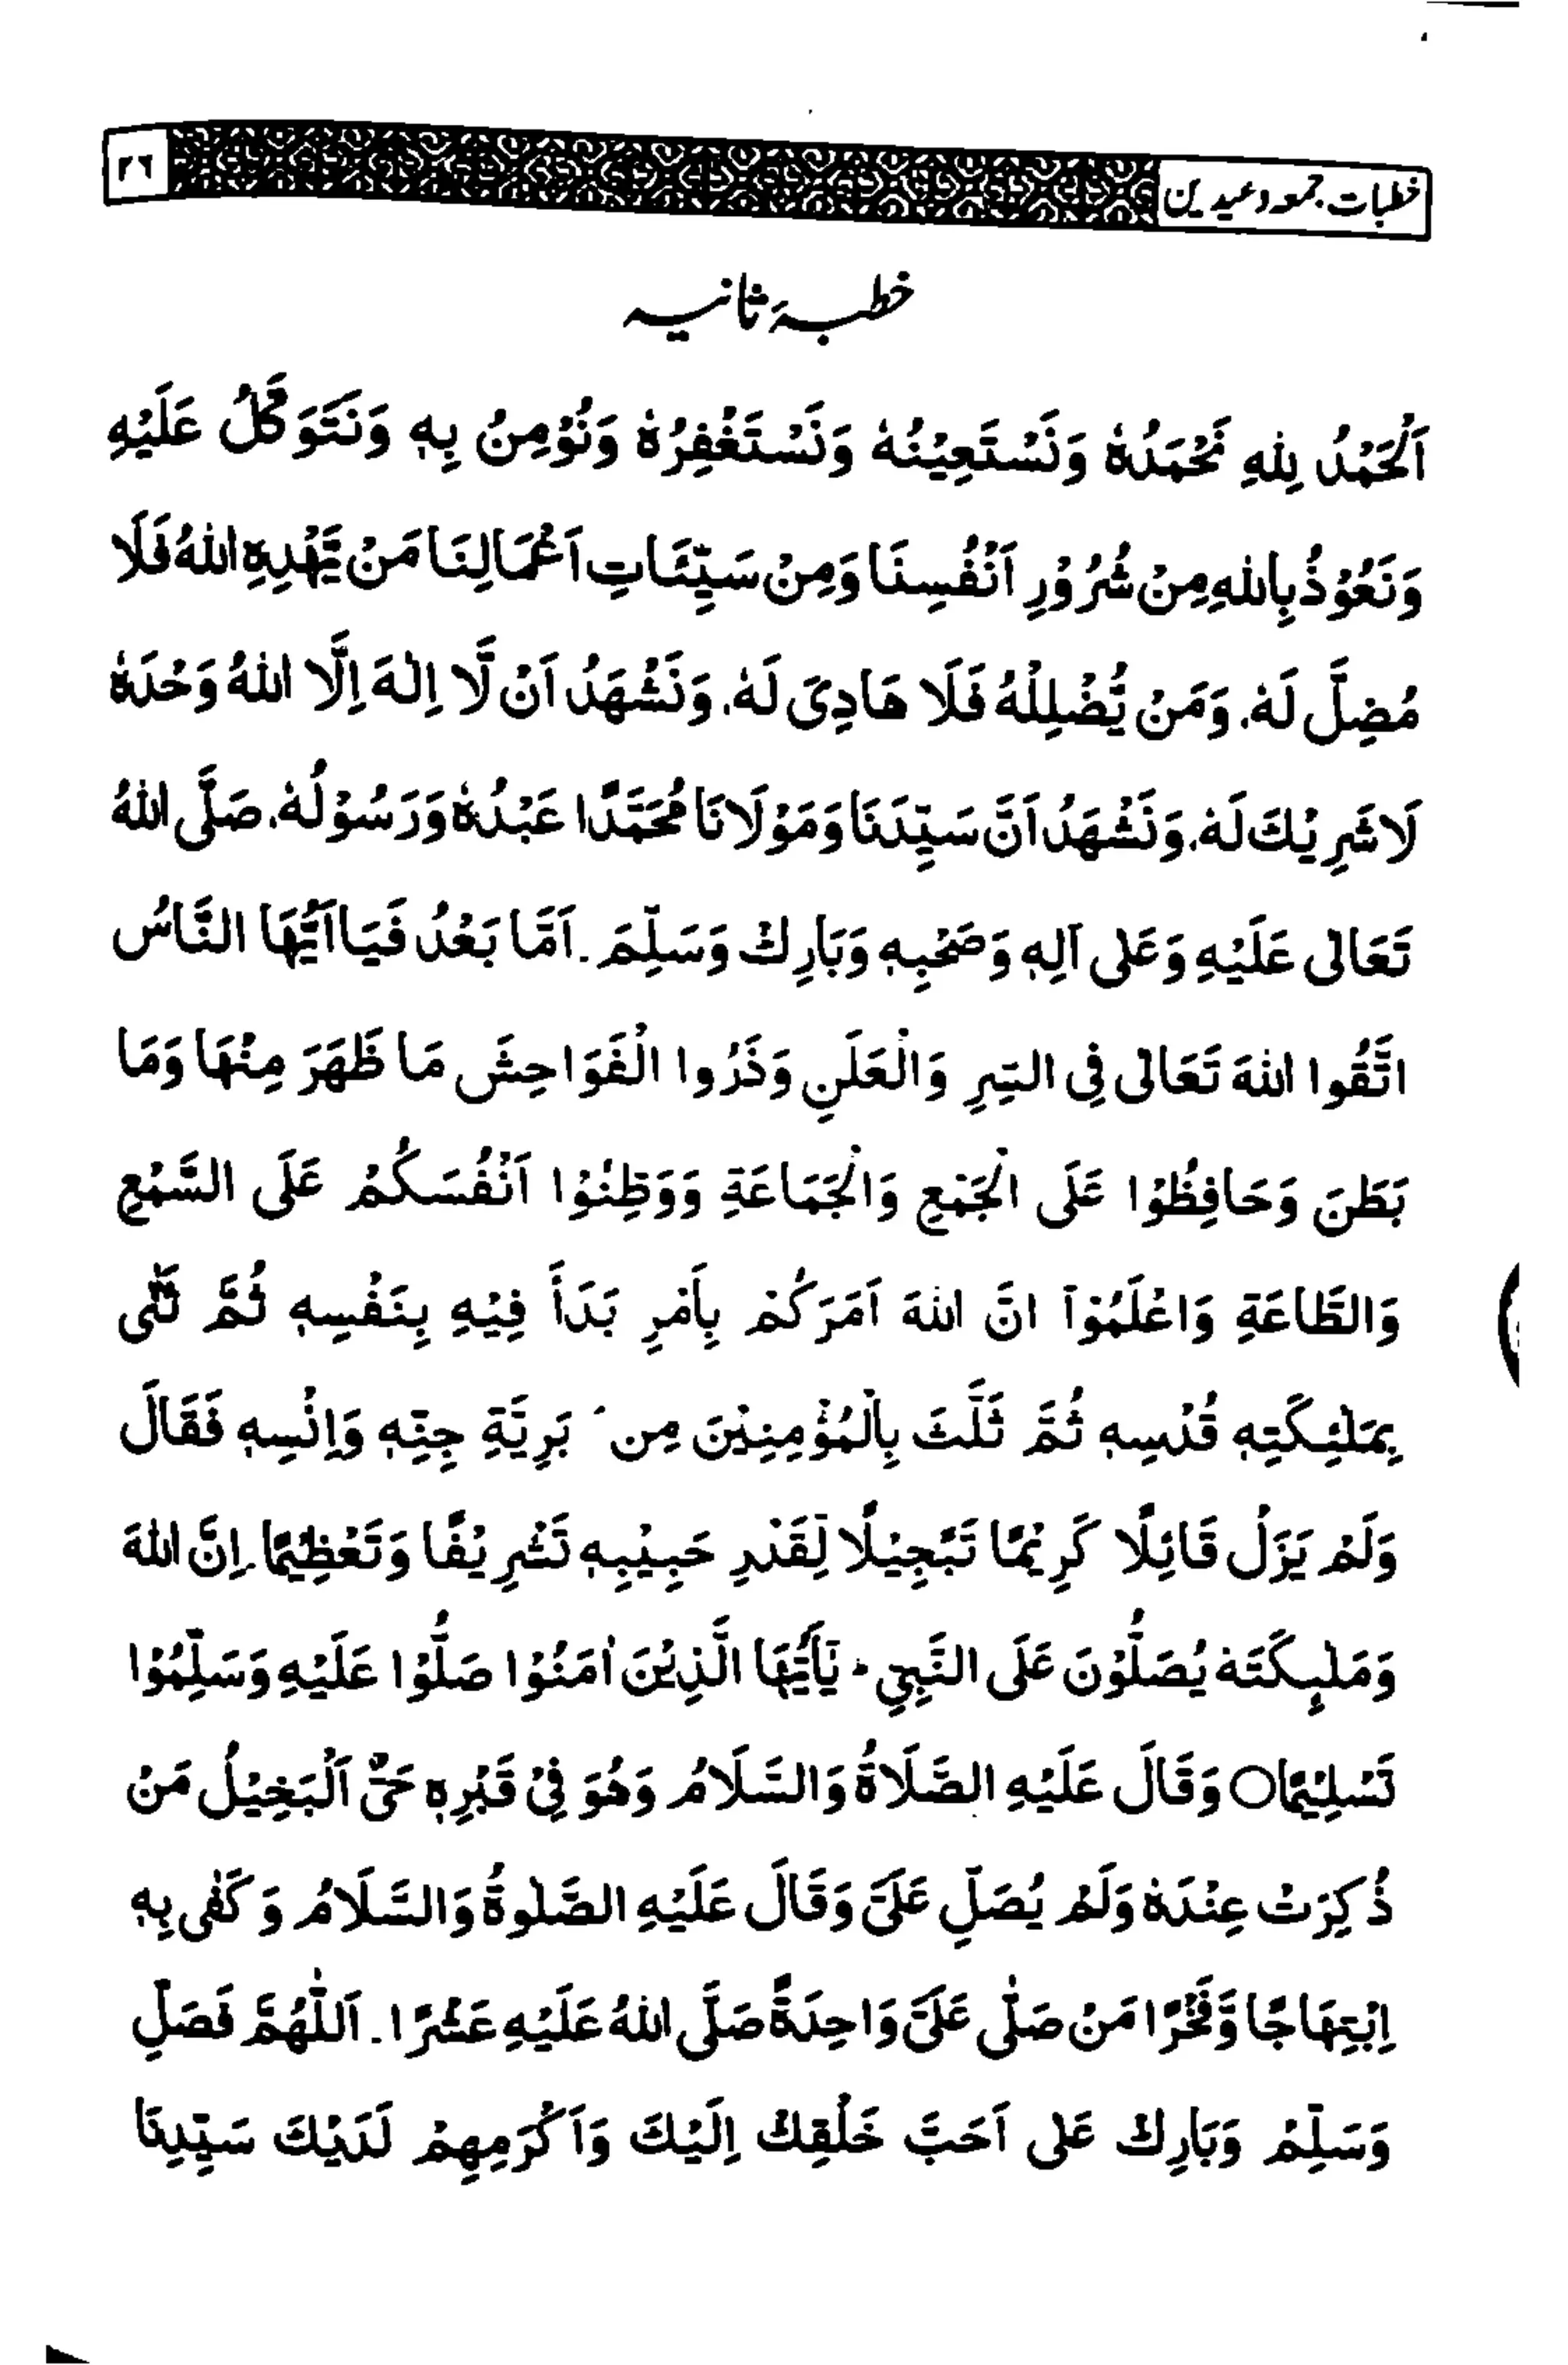 خطبات جمعہ و عیدین ۲۶
خطبۂ ثانیہ
اَلْحَمْدُ لِلهِ نَحْمَدُهٗ وَنَسْتَعِيْنُهٗ وَنَسْتَغْفِرُهٗ وَنُؤْمِنُ بِهٖ وَنَتَوَكَّلُ عَلَيْهِ
وَنَعُوْذُ بِاللهِ مِنْ شُرُوْرِ اَنْفُسِنَا وَمِنْ سَيِّئَاتِ اَعْمَالِنَا مَنْ يَّهْدِهِ اللهُ فَلَا
مُضِلَّ لَهٗ. وَمَنْ يُّضْلِلْهُ فَلَا هَادِىَ لَهٗ. وَنَشْهَدُ اَنْ لَّا اِلٰهَ اِلَّا اللهُ وَحْدَهٗ
لَا شَرِيْكَ لَهٗ. وَنَشْهَدُ اَنَّ سَيِّدَنَا وَمَوْلَانَا مُحَمَّدًا عَبْدُهٗ وَرَسُوْلُهٗ. صَلَّى اللهُ
تَعَالٰى عَلَيْهِ وَعَلٰى اٰلِهٖ وَصَحْبِهٖ وَبَارِكْ وَسَلِّمَ. اَمَّا بَعْدُ فَيَا اَيُّهَا النَّاسُ
اتَّقُوا اللهَ تَعَالٰى فِى السِّرِ وَالْعَلَنِ وَذَرُوا الْفَوَاحِشَ مَا ظَهَرَ مِنْهَا وَمَا
بَطَنَ وَحَافِظُوْا عَلَى الْجَمْعِ وَالْجَمَاعَةِ وَوَطِّنُوْا اَنْفُسَكُمْ عَلَى السَّمْعِ
وَالطَّاعَةِ وَاعْلَمُوْآ انَّ اللهَ اَمَرَكُمْ بِأَمْرٍ بَدَأَ فِيْهِ بِنَفْسِهٖ ثُمَّ ثَنّٰى
بِمَلٰئِكَتِهٖ قُدْسِهٖ ثُمَّ ثَلَّثَ بِالْمُؤْمِنِيْنَ مِن َ بَرِيَّةِ جِنِّهٖ وَاِنْسِهٖ فَقَالَ
وَلَمْ يَزَلْ قَائِلًا كَرِيْمًا تَبْجِيْلًا لِّقَدْرِ حَبِيْبِهٖ تَشْرِيْفًا وَتَعْظِيْمًا. اِنَّ اللهَ
وَمَلٰٓئِكَتَهٗ يُصَلُّوْنَ عَلَى النَّبِيِ ؕ يٰٓاَيُّهَا الَّذِيْنَ اٰمَنُوْا صَلُّوْا عَلَيْهِ وَسَلِّمُوْا
تَسْلِيْمًا○ وَقَالَ عَلَيْهِ الصَّلَاةُ وَالسَّلَامُ وَهُوَ فِىْ قَبْرِهٖ حَىٌّ اَلْبَخِيْلُ مَنْ
ذُكِرْتُ عِنْدَهٗ وَلَمْ يُصَلِّ عَلَىَّ وَقَالَ عَلَيْهِ الصَّلٰوةُ وَالسَّلَامُ وَكَفٰى بِهٖ
اِبْتِهَاجًا وَّفَخْرًا مَنْ صَلّٰى عَلَىَّ وَاحِدَةً صَلَّى اللهُ عَلَيْهِ عَشْرًا. اَللّٰهُمَّ فَصَلِّ
وَسَلِّمْ وَبَارِكْ عَلٰى اَحَبِّ خَلْقِكَ اِلَيْكَ وَاَكْرَمِهِمْ لَدَيْكَ سَيِّدِنَا